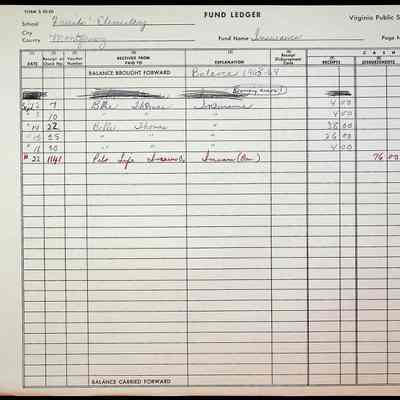 FORM S 00-00
FUND LEDGER
Virginia Public S
School Elementary
City
County Montgomery
Fund Name Insurance
Page N
CASH
(1) (2) (3) (4) (5) (6) (7) (8)
DATE Receipt or Check No. Voucher Number RECEIVED FROM PAID TO EXPLANATION Receipt Disbursement Code RECEIPTS DISBURSEMENTS
BALANCE BROUGHT FORWARD Balance 1968-69
Sept 2 7 Billie Thomas Insurance 4 00
" 3 10 " " " 4 00
" 14 22 Billie Thomas " 38 00
" 15 25 " " " 26 00
" 18 30 " " " 4 00
" 22 1141 Pilot Life Insurance 76 00
BALANCE CARRIED FORWARD